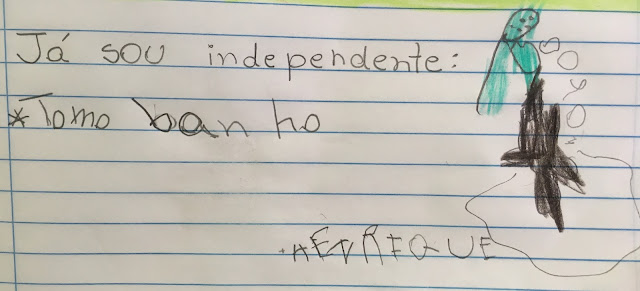 Já sou independente:
*Tomo banho
HENRIQUE